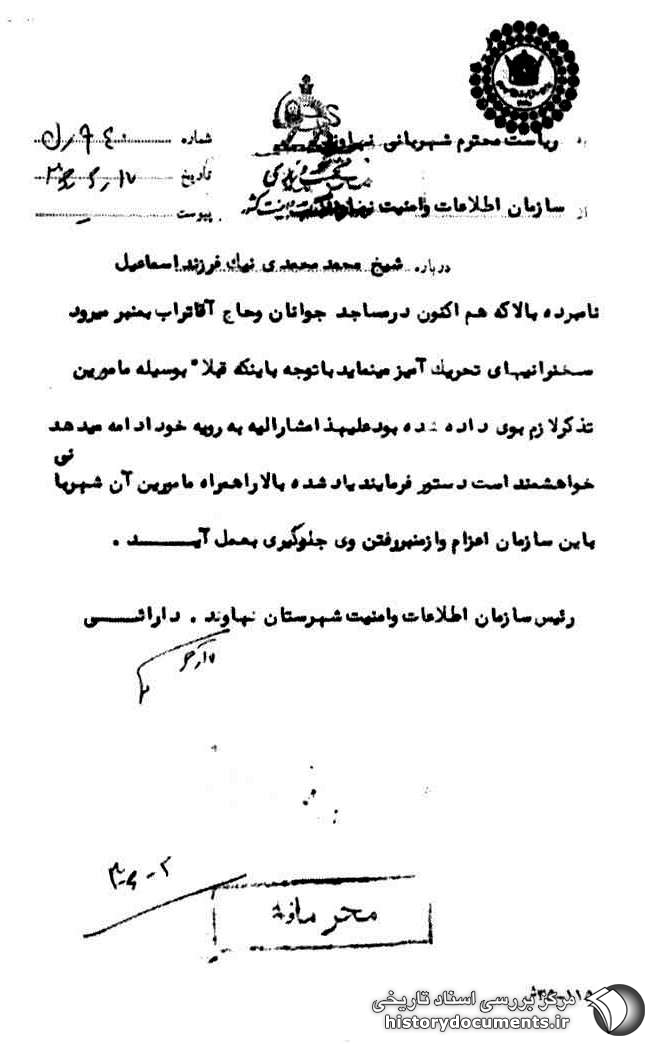 به ریاست محترم شهربانی نهاوند
شماره ۹۴۰
از سازمان اطلاعات وامنیت
تاریخ
پیوست
درباره شیخ محمد محمدی نیک فرزند اسماعیل
نامبرده بالاکه هم اکنون درمساجد جوانان وحاج آقاتراب بمنبر میرود
سخنرانیهای تحریک آمیز مینماید باتوجه باینکه قبلا" بوسیله مامورین
تذکرلازم بوی داده شده بود علیهذا مشارالیه به رویه خود ادامه میدهد
خواهشمند است دستور فرمایند یاد شده بالا راهمراه مامورین آن شهربانی
باین سازمان اعزام وازمنبررفتن وی جلوگیری بعمل آیـــد .
رئیس سازمان اطلاعات وامنیت شهرستان نهاوند . دارائــی
محرمانه
مرکز بررسی اسناد تاریخی
historydocuments.ir